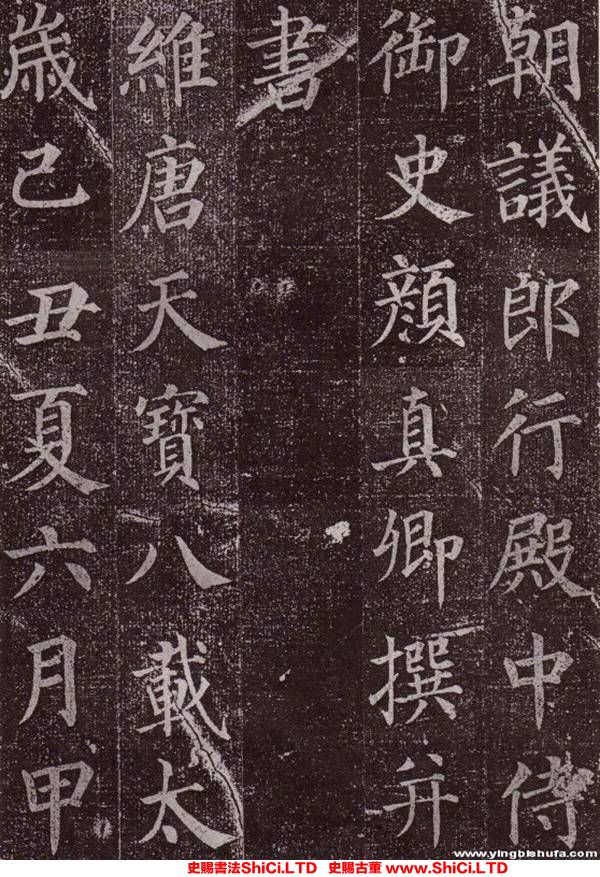 朝議郎行殿中侍
御史顏真卿撰并
書
維唐天寶八載太
歲己丑夏六月甲
www.yingbishufa.com
史賜書法ShiCi.LTD 史賜古董 www.ShiCi.LTD